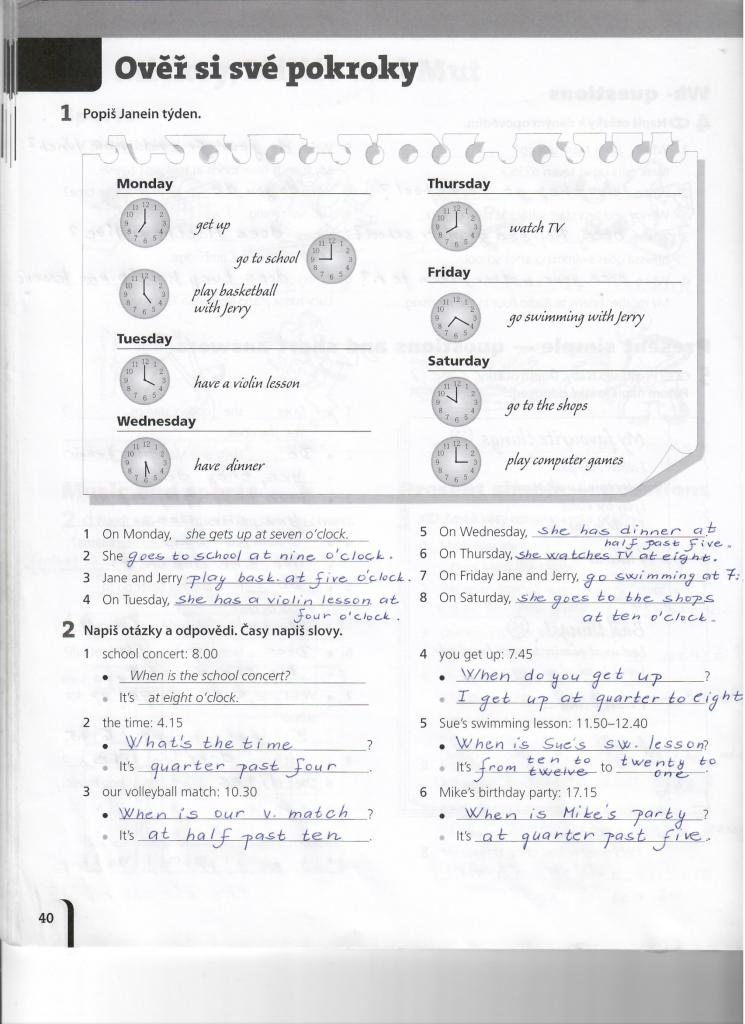 Ověř si své pokroky
1 Popiš Janein týden.
Monday
get up
go to school
play basketball
with Jerry
Tuesday
have a violin lesson
Wednesday
have dinner
Thursday
watch TV
Friday
go swimming with Jerry
Saturday
go to the shops
play computer games
1 On Monday, she gets up at seven o'clock.
2 She goes to school at nine o'clock.
3 Jane and Jerry play bask. at five o'clock.
4 On Tuesday, she has a violin lesson at
four o'clock.
5 On Wednesday, she has dinner at
half past five.
6 On Thursday, she watches TV at eight.
7 On Friday Jane and Jerry, go swimming at 7:
8 On Saturday, she goes to the shops
at ten o'clock.
2 Napiš otázky a odpovědi. Časy napiš slovy.
1 school concert: 8.00
• When is the school concert?
• It's at eight o'clock.
2 the time: 4.15
• What's the time ?
• It's quarter past four.
3 our volleyball match: 10.30
• When is our v. match ?
• It's at half past ten.
4 you get up: 7.45
• When do you get up ?
• I get up at quarter to eight
5 Sue's swimming lesson: 11.50–12.40
• When is Sue's sw. lesson?
• It's from ten to twelve to twenty to one.
6 Mike's birthday party: 17.15
• When is Mike's party ?
• It's at quarter past five.
40